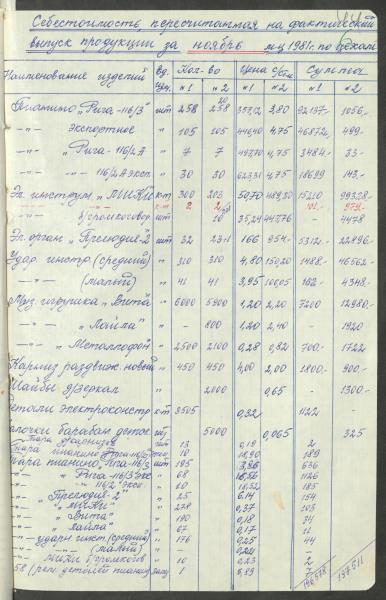 Себестоимость, пересчитанная на фактический
выпуск продукции за ноябрь м-ц 1981г. по цехам
Наименование изделий Ед. изм. Кол-во Цена с/ст Сумма
№1 №2 №1 №2 №1 №2
Пианино „Рига-116/3" шт 258 258 357,12 3,80 92137- 1056,-
-„- Экспортное „ 105 105 446,40 4,75 46872 499.-
-„- „Рига-116/2 А „ 7 7 497,70 4,75 3484.- 33.-
-„- -„- 116/2 А эксп. „ 30 30 623,31 4,75 18699 143,-
Эл. инструм. „МИКИ" к-т 300 203 50,70 489,30 15210 99328.-
к-т 2 2 101.- 979.-
-„- б/громкоговор. шт 10 35,24 447,76 4478
Эл. орган „Прелюдия-2" шт 32 166 954.- 5312.- 22896.-
Удар. инстр. (средний) „ 310 310 4,80 150,20 1488.- 46562.-
-„- (малый) „ 41 41 3,95 106,05 162.- 4348.-
Муз. игрушка „Вита" „ 6000 5900 1,20 2,20 7200 12980.-
-„- „Лайма" „ - 800 1,20 2,40 - 1920
-„- Металлофон „ 2500 2100 0,28 0,82 700.- 1722
Карниз раздвиж. новый „ 450 450 4,00 2,00 1800.- 900.-
Шайбы д/зеркал „ 2000 0,65 - 1300.-
Детали электроконстр. к-т 3505 0,32 1122 -
палочки барабан. деток. шт 5000 0,065 325
Тара Карнизов шт 13 0,19 2
Тара пианино 10 18,90 189
Тара пианино „Рига-116/3 шт 195 3,26 636
-„- „Рига-116/3 Экс „ 68
-„- 116/2 Эксп. „ 10 18,52 185
-„- „Прелюдия-2" „ 25 6,14 154
-„- „Мики" „ 278 0,37 103
-„- „Вита" „ 190 0,18 34
-„- „Лайма" „ 67 0,17 11
-„- ударн. инст (средний) „ 176 0,25 44
-„- (малый) „ - 0,24 -
-„- Мики б/громкогов „ 10 0,23 2
(рем. деталей пианино) 1
196578 197511